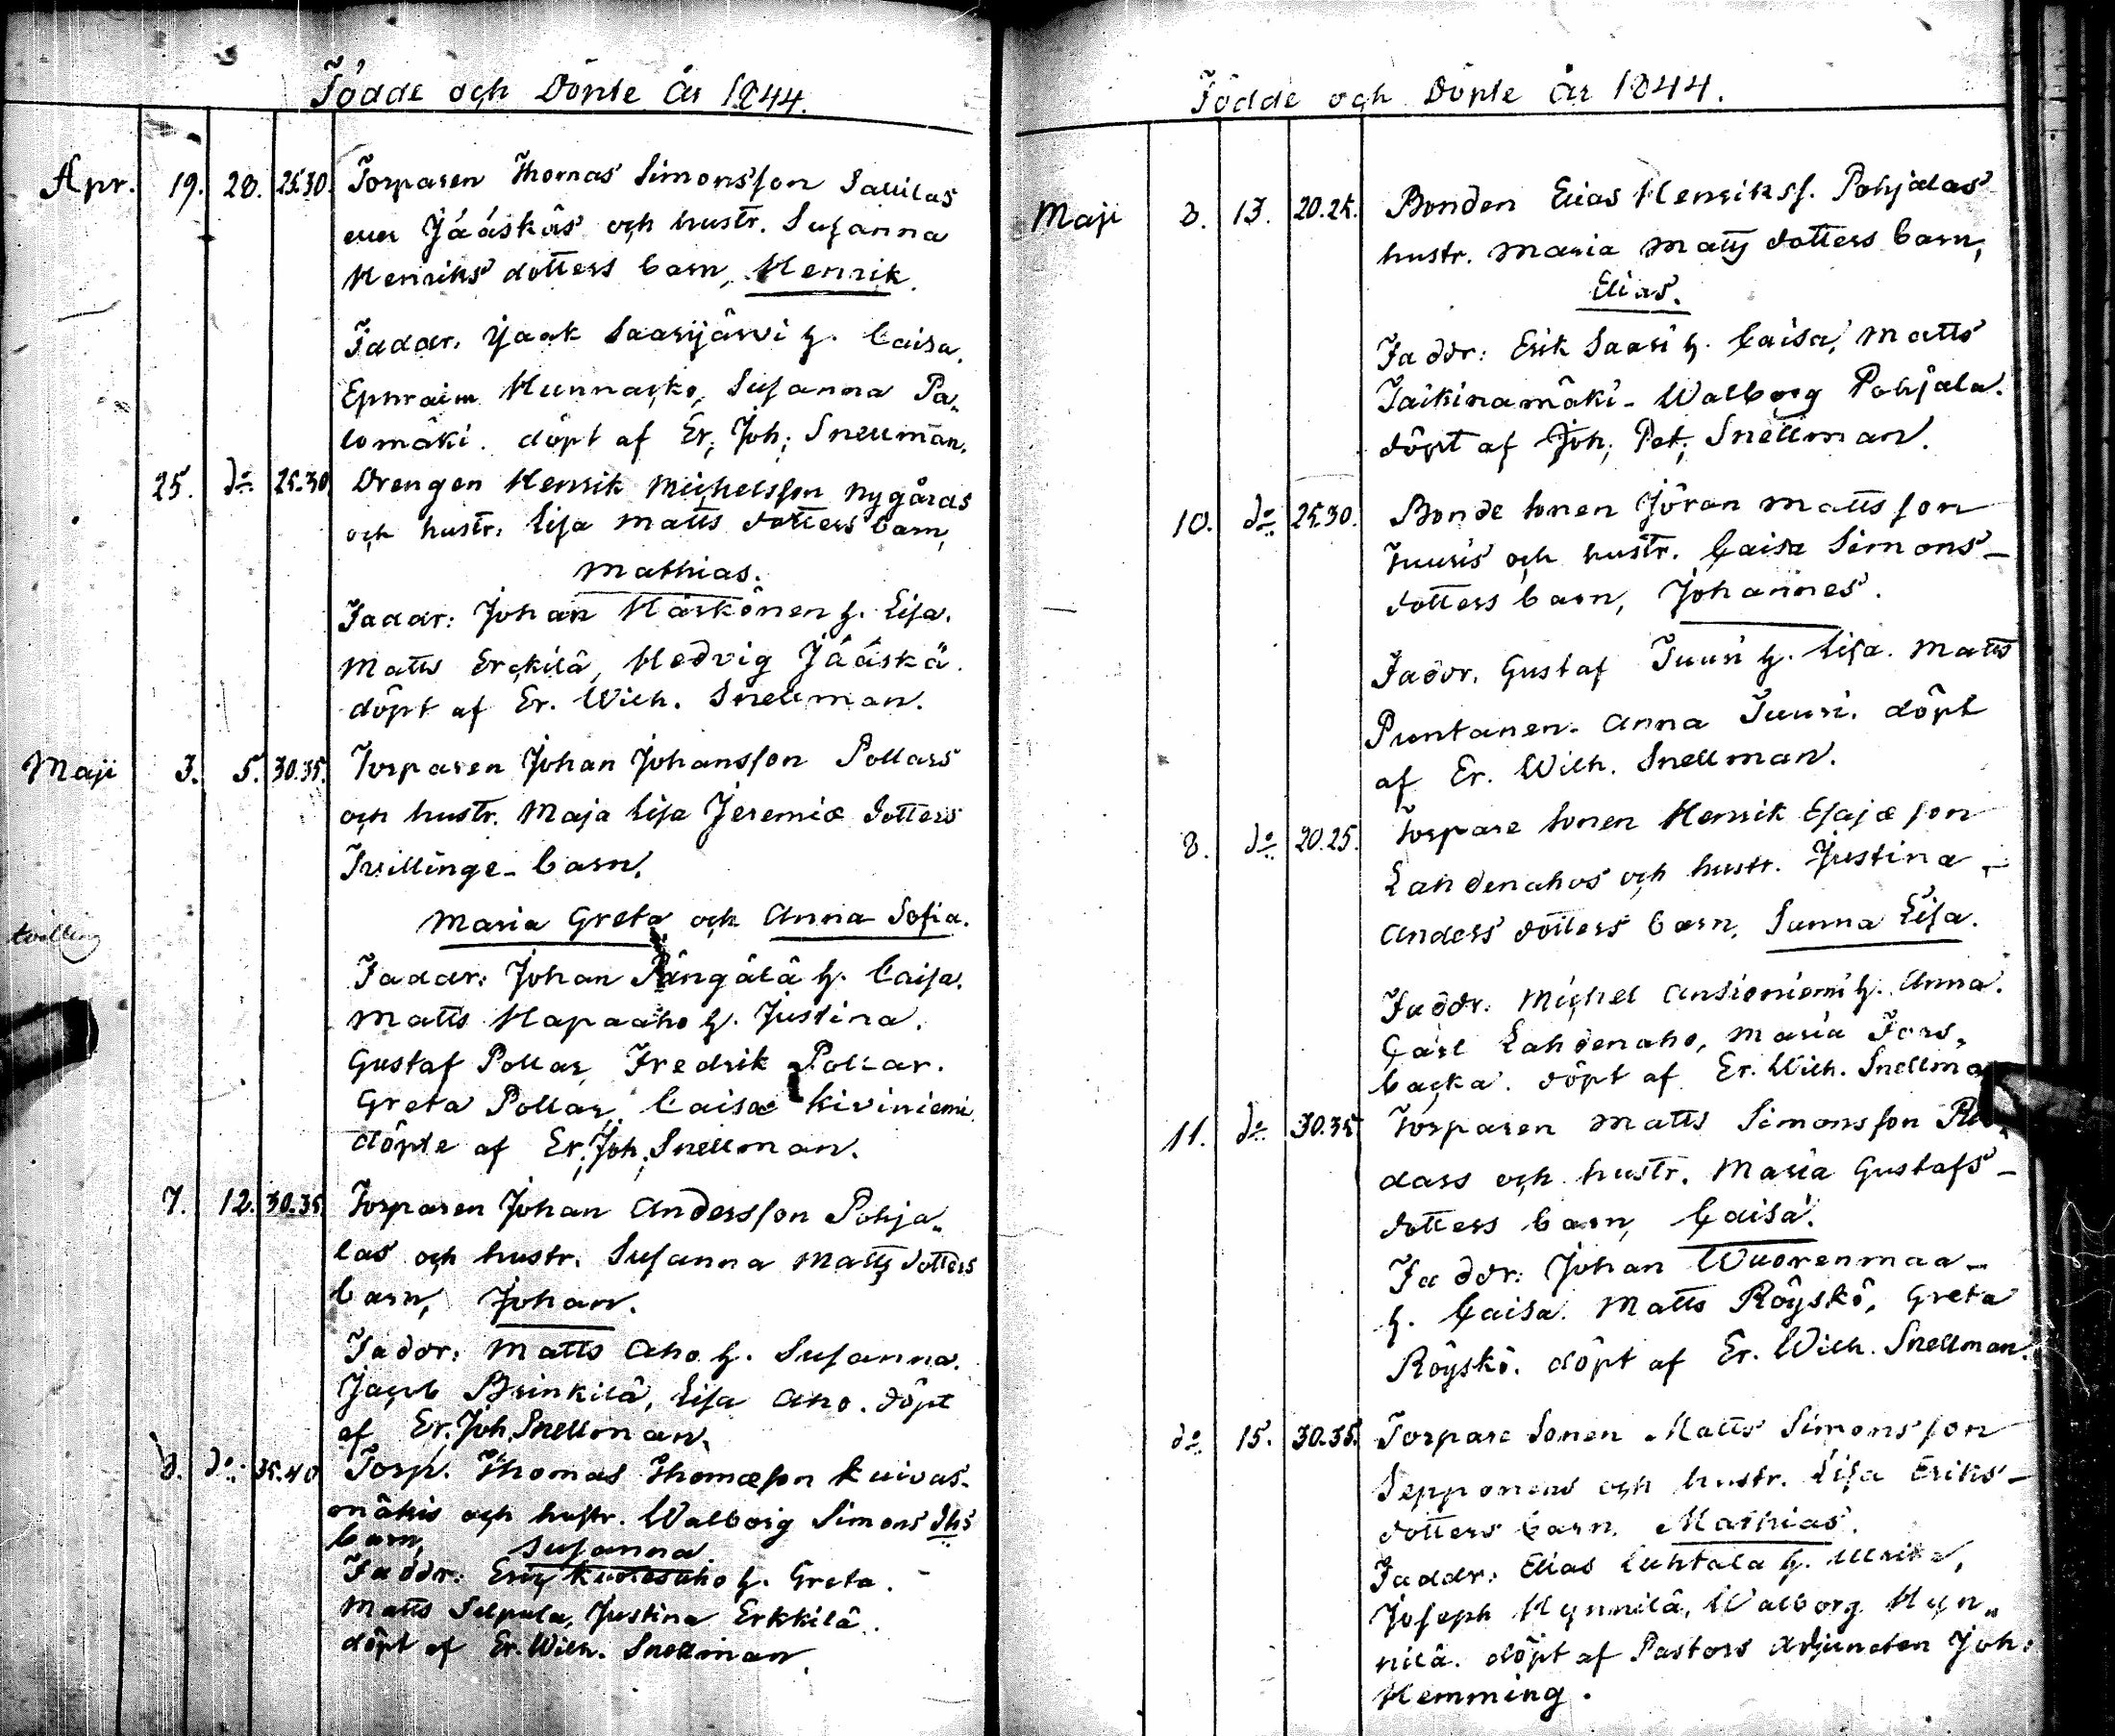 Födde och Döpte År 1844.
Apr. 19. 28. 25.30. Torparen Thomas Simonsson Savilas
eller Jääskäs och hustr. Susanna
Henriks dotters barn, Henrik.
Faddr. Isaak Saarijärvi h. Caisa,
Ephraim Hunnacko, Susanna Pa„
lomäki. döpt af Er; Joh; Snellman.
25. do 25.30 Drengen Henrik Michelsson Nygårds
och hustr. Lisa Matts dotters barn,
Mathias.
Faddr: Johan Härkönen h. Lisa.
Matts Erckilä, Hedvig Jääskä.
döpt af Er. Wilh. Snellman.
Maji 3. 5. 30.35. Torparen Johan Johansson Pollars
och hustr. Maja Lisa Jeremiæ dotters
Tvillinge-barn.
tvilling
Maria Greta och Anna Sofia.
Faddr: Johan Pängälä h. Caisa.
Matts Hapaaho h. Justina.
Gustaf Pollar, Fredrik Pollar.
Greta Pollar, Caisa Kiviniemi
döpte af Er; Joh; Snellman.
7. 12. 30.35 Torparen Johan Andersson Pohja„
las och hustr. Susanna Matts dotters
barn, Johan.
Faddr: Matts Aho h. Susanna.
Jacob Brinkilä, Lisa Aho. döpt
af Er. Joh. Snellman.
8. do 35.40 Torp. Thomas Thomæson Kuivas-
mäkis och hustr. Walborg Simons dts
barn, Susanna
Faddr: Eric Kuivasaho h. Greta.
Matts Selpula, Justina Erkkilä.
döpt af Er. Wilh. Snellman.
Födde och Döpte År 1844.
Maji 8. 13. 20.25. Bonden Elias Henrikss. Pohjalas
hustr. Maria Matts dotters barn,
Elias.
Faddr: Erik Saari h. Caisa, Matts
Taikinamäki - Walborg Pohjala.
döpt af Joh; Pet; Snellman.
10. do 25.30. Bonde Sonen Jöran Mattsson
Juusis och hustr. Caisa Simons-
dotters barn, Johannes.
Faddr. Gustaf Juusi h. Lisa. Matts
Puntanen. Anna Juusi. döpt
af Er. Wilh. Snellman.
8. do 20.25. Torpare Sonen Henrik Esajæson
Lahdenahos och hustr. Justina -
Anders dotters barn, Sanna Lisa.
Faddr: Michel Ansioniemi h. Anna.
Carl Lahdenaho, Maria Fors„
backa. döpt af Er. Wilh. Snellma
11. do 30.35 Torparen Matts Simonsson
dass och hustr. Maria Gustafs-
dotters barn, Caisa.
Faddr: Johan Wuorenmaa -
h. Caisa. Matts Röyskö, Greta
Röyskö. döpt af Er. Wilh. Snellman.
do 15. 30.35. Torpare Sonen Matts Simonsson
Sepponens och hustr. Lisa Eriks-
dotters barn, Mathias.
Faddr: Elias Luhtala h. Ulrika,
Joseph Hynnilä, Walborg Hyn„
nilä. döpt af Pastors Adjuncten Joh:
Hemming.